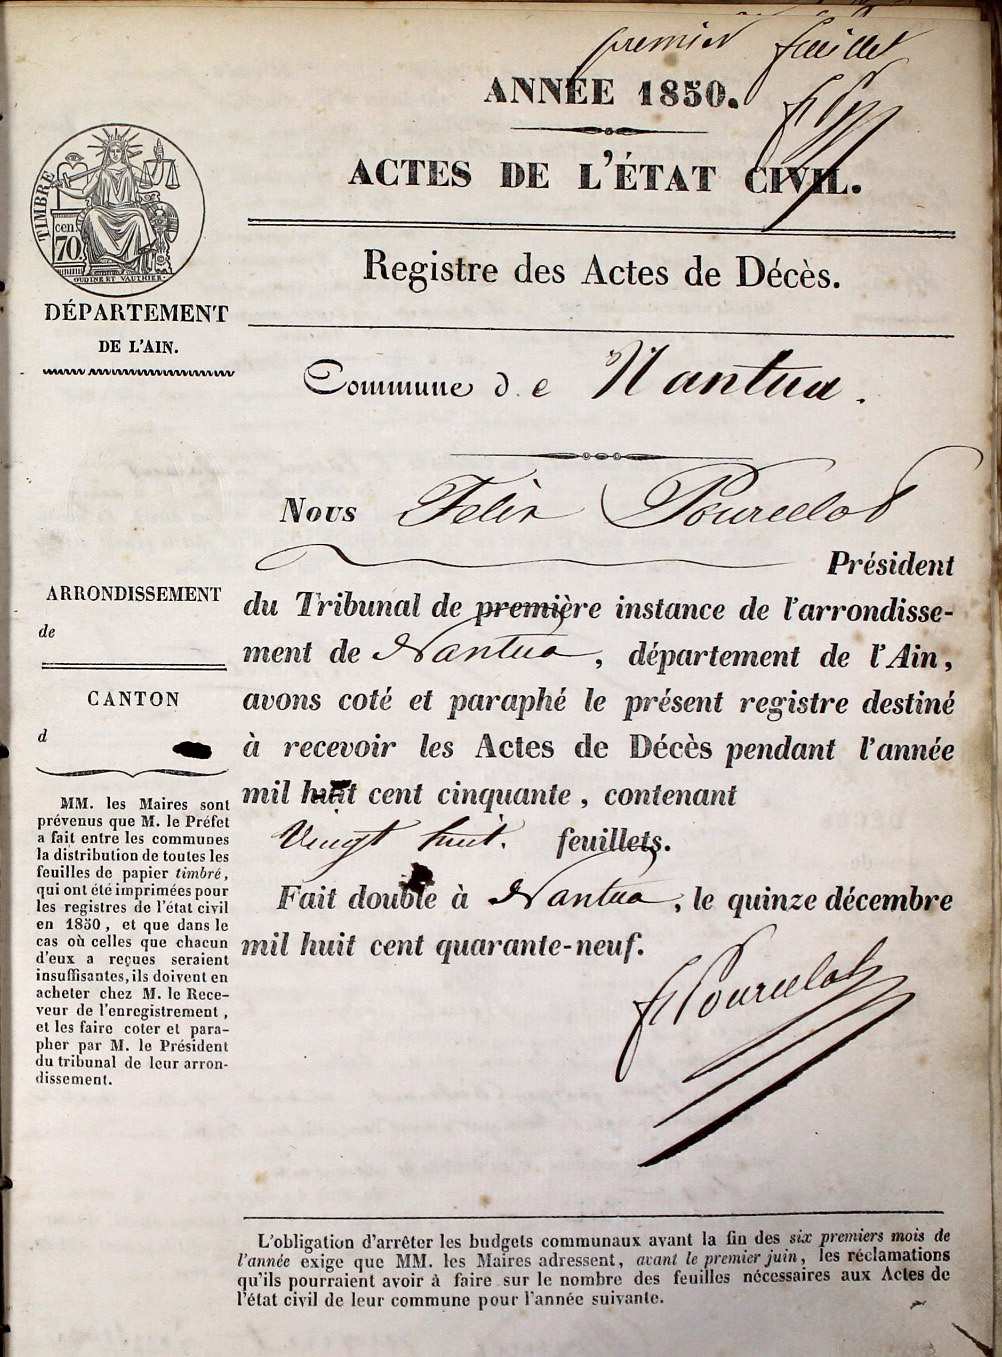 premier feuillet
ANNÉE 1850.
ACTES DE L'ÉTAT CIVIL.
TIMBRE
cen.
70.
OUDINE ET VAUTHIER
DÉPARTEMENT
DE L'AIN.
Registre des Actes de Décès.
Commune de Nantua.
Nous Félix Pourcelot
Président
du Tribunal de première instance de l'arrondisse-
ment de Nantua, département de l'Ain,
avons coté et paraphé le présent registre destiné
à recevoir les Actes de Décès pendant l'année
mil huit cent cinquante, contenant
Vingt huit. feuillets.
Fait double à Nantua, le quinze décembre
mil huit cent quarante-neuf.
F Pourcelot
ARRONDISSEMENT
de
CANTON
d
MM. les Maires sont
prévenus que M. le Préfet
a fait entre les communes
la distribution de toutes les
feuilles de papier timbré,
qui ont été imprimées pour
les registres de l'état civil
en 1850, et que dans le
cas où celles que chacun
d'eux a reçues seraient
insuffisantes, ils doivent en
acheter chez M. le Rece-
veur de l'enregistrement,
et les faire coter et para-
pher par M. le Président
du tribunal de leur arron-
dissement.
L'obligation d'arrêter les budgets communaux avant la fin des six premiers mois de
l'année exige que MM. les Maires adressent, avant le premier juin, les réclamations
qu'ils pourraient avoir à faire sur le nombre des feuilles nécessaires aux Actes de
l'état civil de leur commune pour l'année suivante.